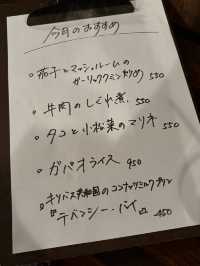 今月のおすすめ
。茄子とマッシュルームの
ガーリッククミン炒め 550
。牛肉のしぐれ煮 550
。タコと小松菜のマリネ 550
。ガパオライス 950
。キリバス共和国のココナッツミルクプリン
『テバンシー・パイ』 450